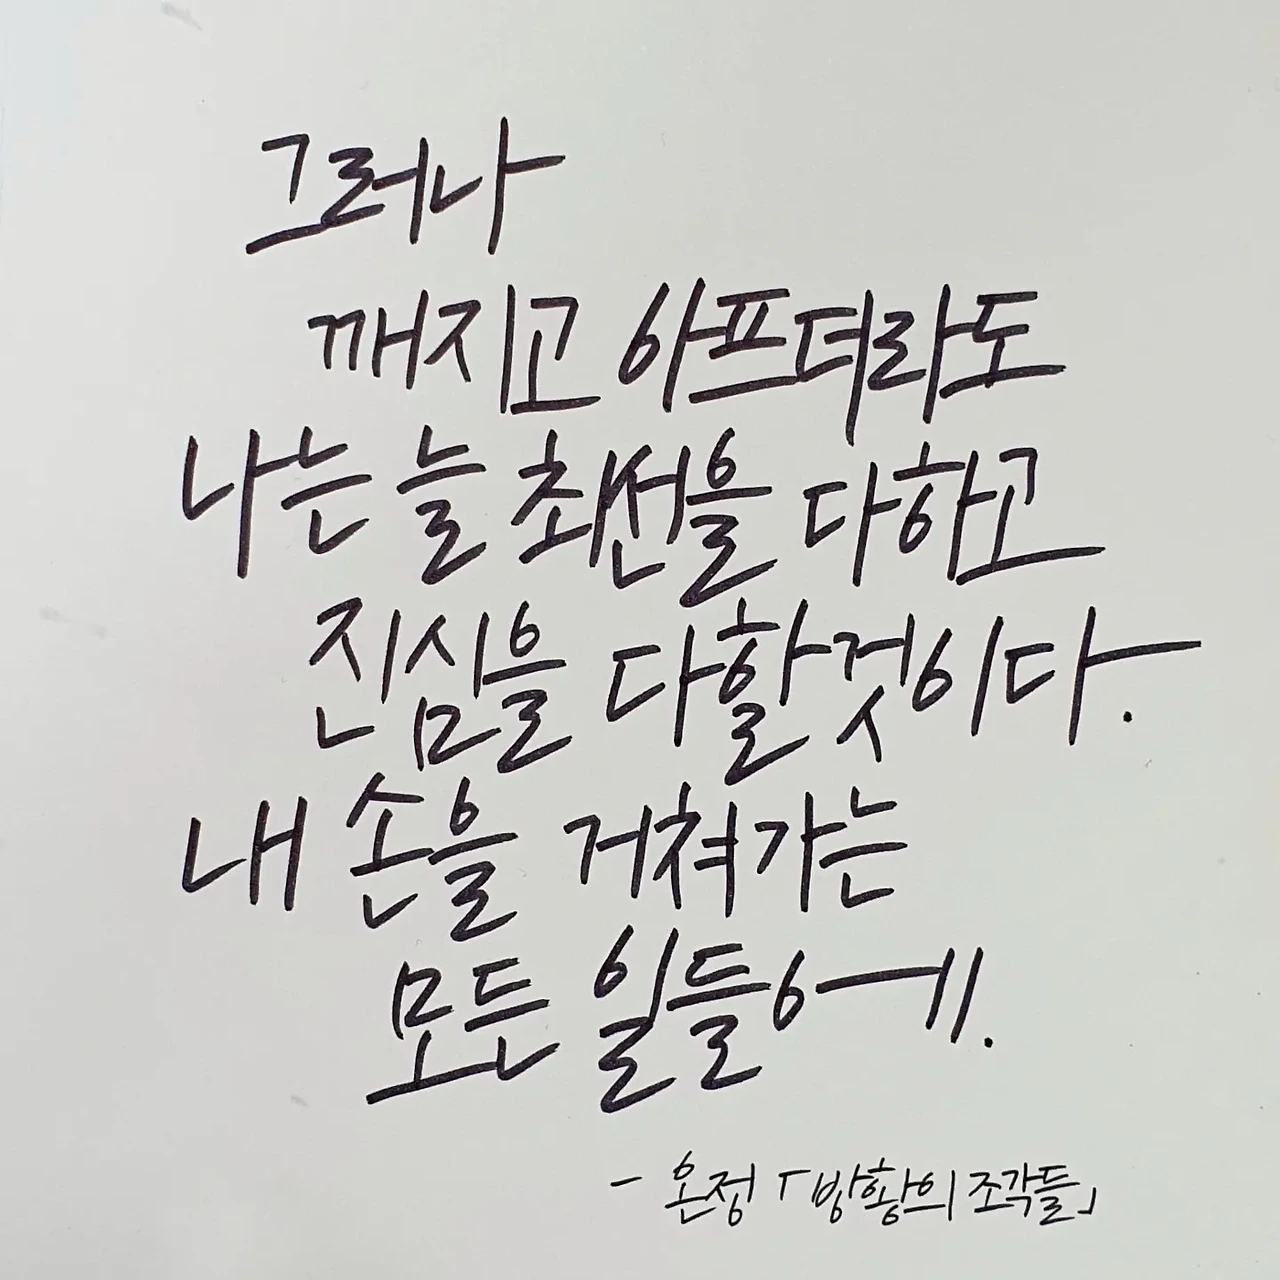 그러나
깨지고 아프더라도
나는 늘 최선을 다하고
진심을 다할것이다.
내 손을 거쳐가는
모든 일들에.
- 온정 「방황의 조각들」